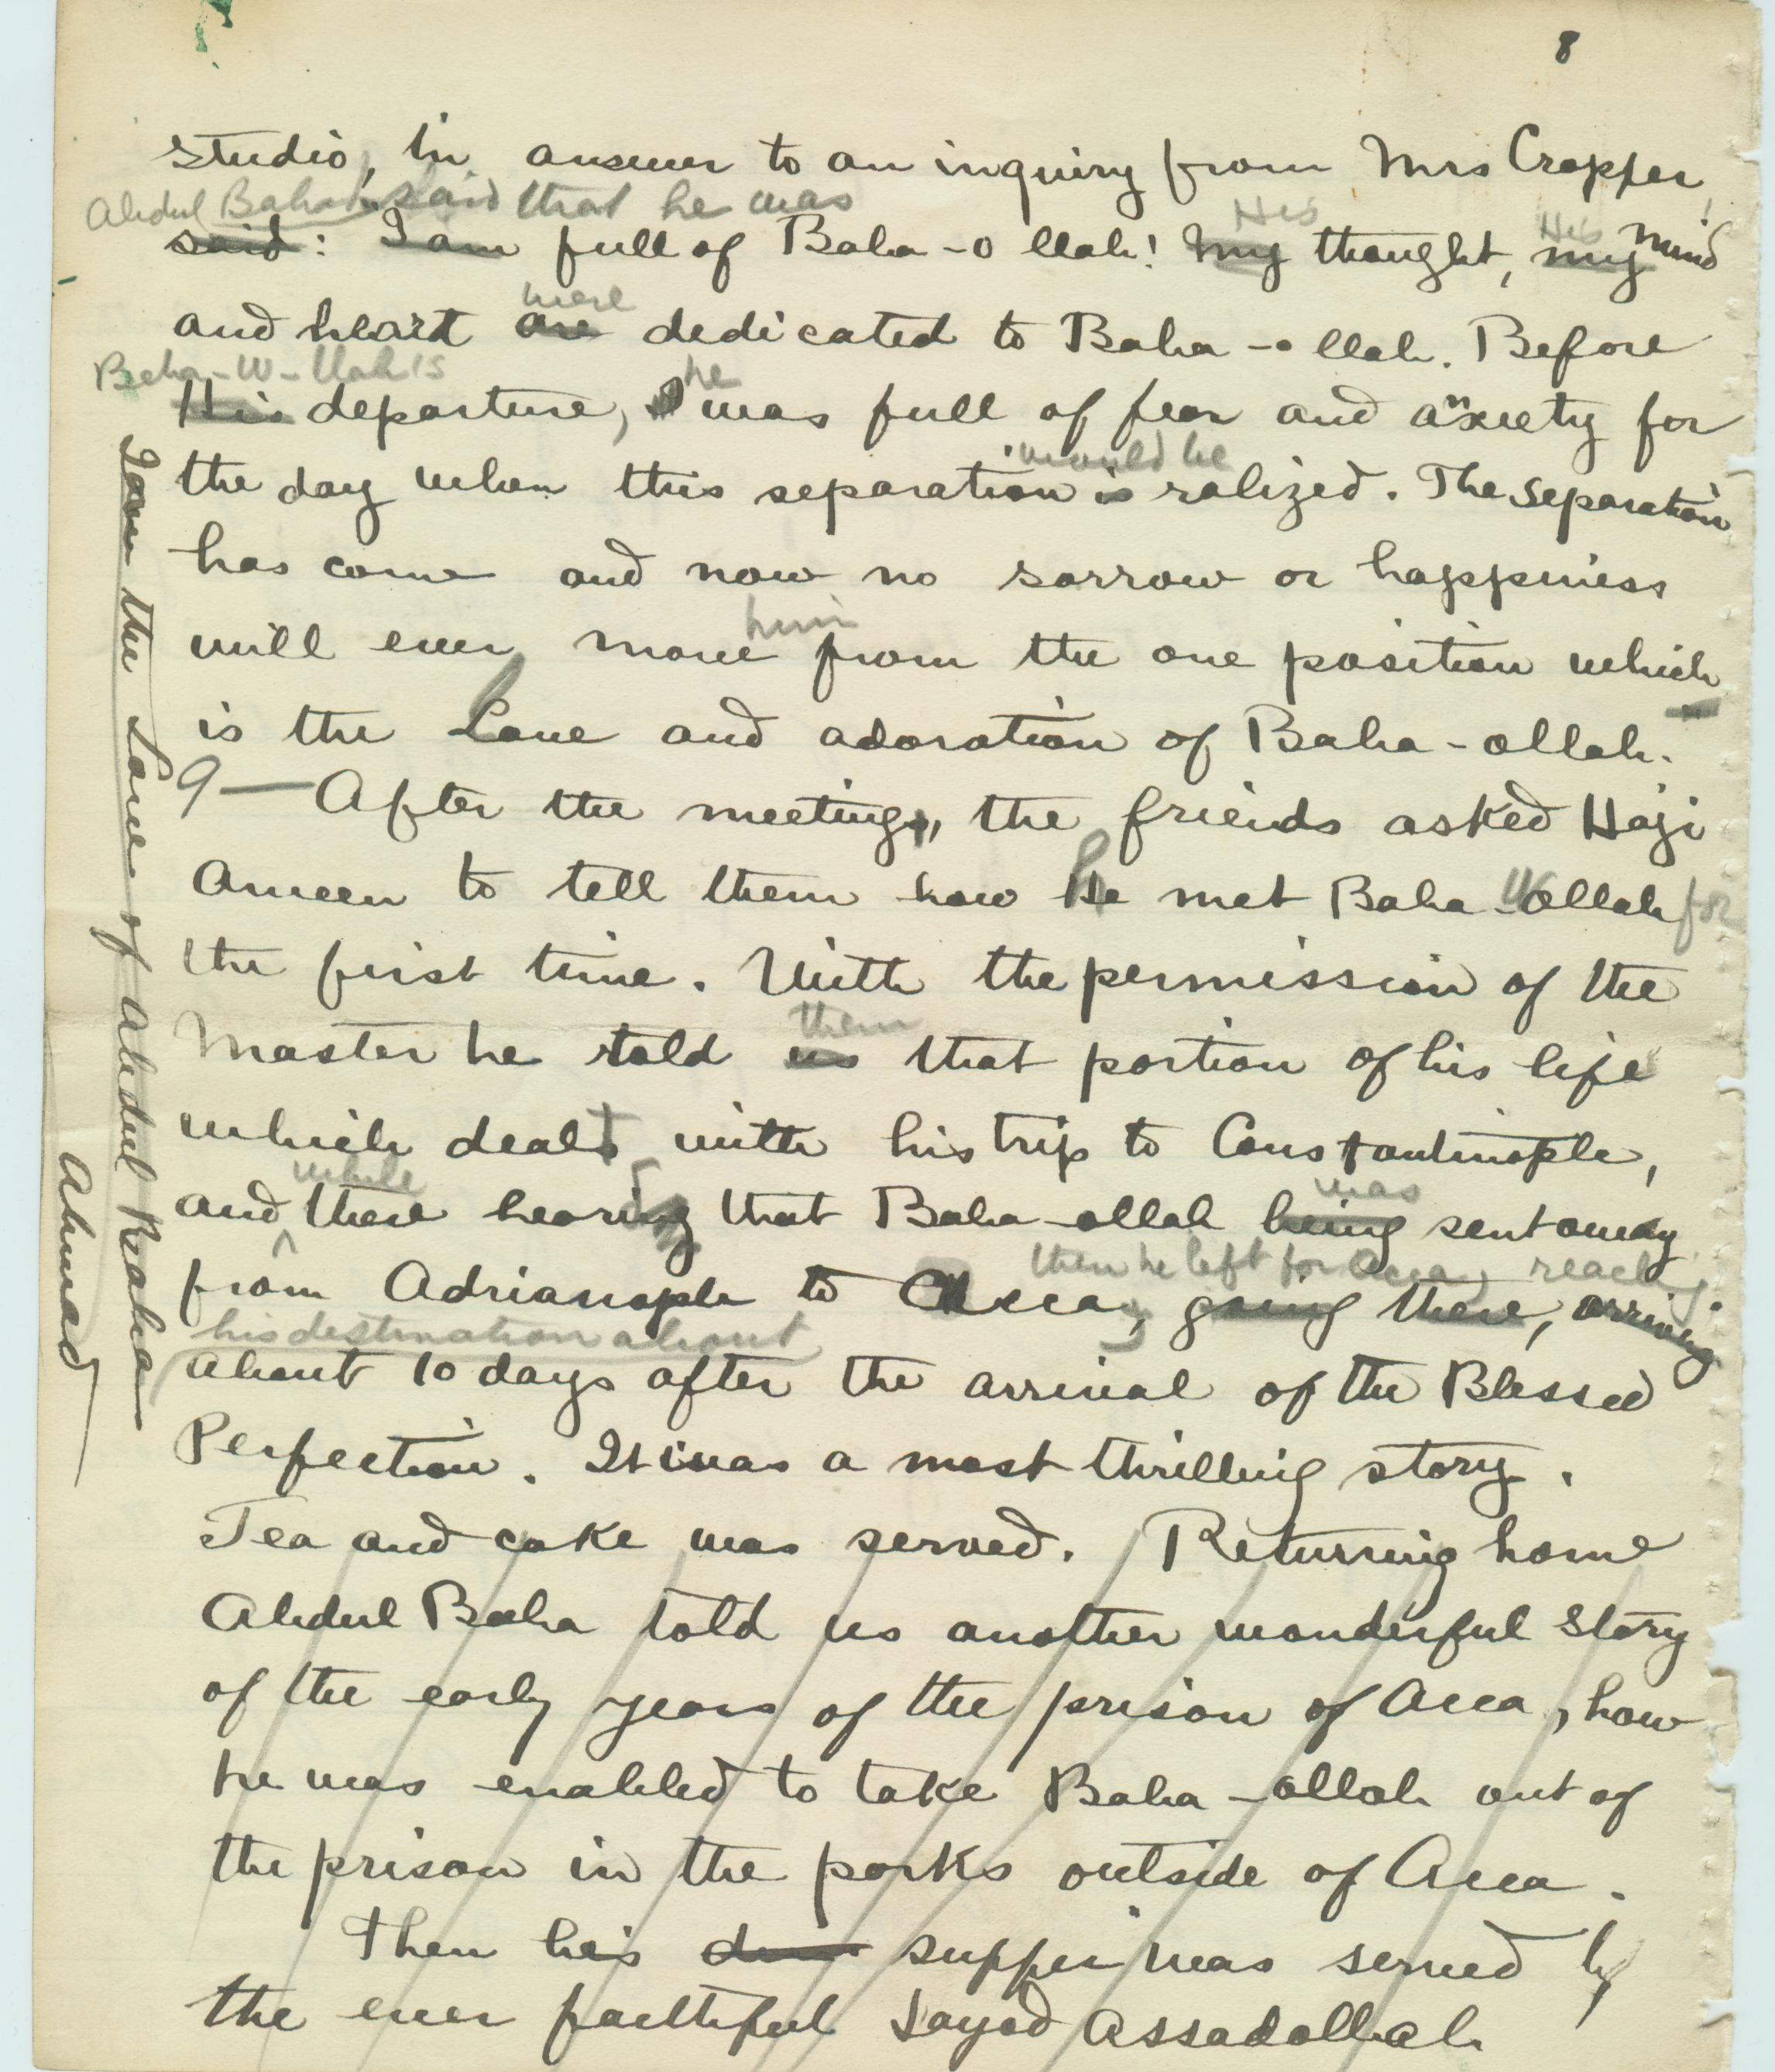 8
studio, In answer to an inquiry from Mrs Cropper,
Abdul Baha said that he was
said: I am full of Baha-o llah! My thought, my mind
His His
and heart are dedicated to Baha-o llah. Before
were
Baha-u-llah's
His departure, I was full of fear and anxiety for
he
the day when this separation is ralized. The separation
would be
has come and now no sorrow or happiness
will ever move from the one position which
him
is the Love and adoration of Baha-ollah.
9— After the meeting, the friends asked Haji
Ameen to tell them how he met Baha-ollah for
u
the first time. With the permission of the
Master he told us that portion of his life
them
which dealt with his trip to Constantinople,
and there hearing that Baha-ollah being sent away
while was
from Adrianople to Acca, going there, arriving
then he left for Acca, reaching
his destination about
about 10 days after the arrival of the Blessed
Perfection. It was a most thrilling story.
Tea and cake was served. Returning home
Abdul Baha told us another wonderful story
of the early years of the prison of Acca, how
he was enabled to take Baha-ollah out of
the prison in the parks outside of Acca.
Then his supper was served by
the ever faithful Sayad Assadollah
I am the Love of Abdul Baha
Ahmad